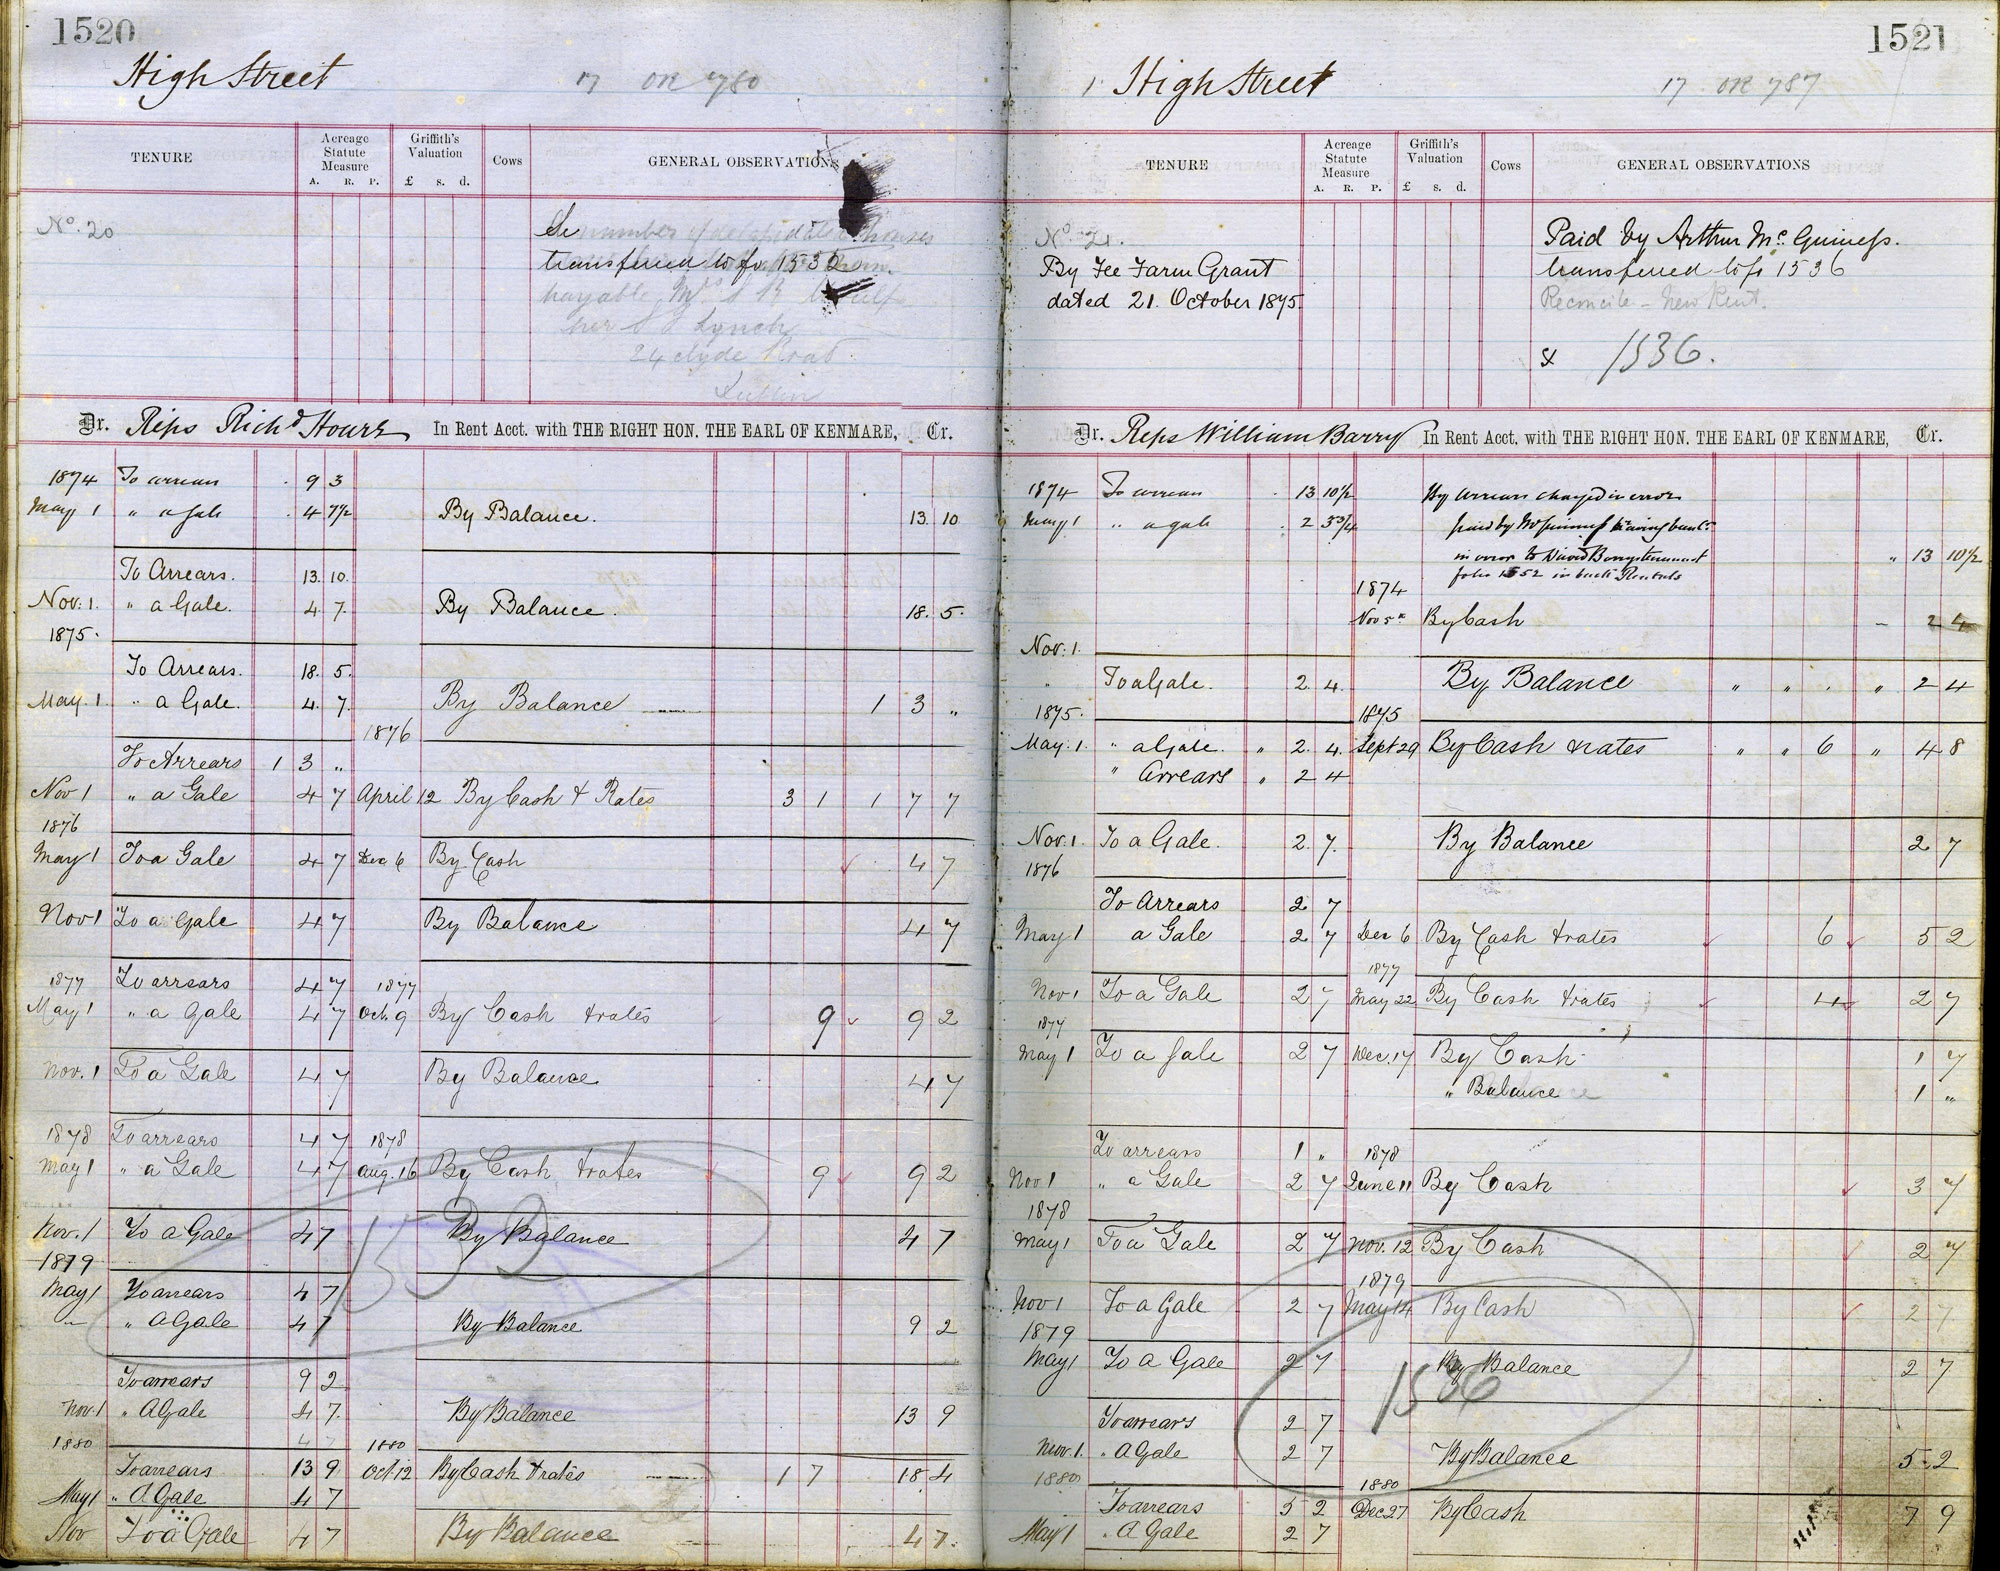 1520
High Street
17 OR 780
TENURE
Acreage Statute Measure
A. R. P.
Griffith's Valuation
£ s. d.
Cows
GENERAL OBSERVATIONS
No. 20
number of dilapidated houses
transferred to fo. 1532
payable Mrs
Lynch
24 Clyde Road
Dublin
Dr. Reps Richd In Rent Acct. with THE RIGHT HON. THE EARL OF KENMARE, Cr.
1874 To arrears 9 3
May 1 " a gale 4 7½ By Balance. 13. 10
To Arrears. 13. 10.
Nov. 1. " a Gale. 4. 7. By Balance. 18. 5.
1875.
To Arrears. 18. 5.
May. 1. " a Gale. 4. 7. By Balance 1 3 "
1876
To Arrears 1 3 "
Nov 1 " a Gale 4 7 April 12 By Cash & Rates 3 1 1 7 7
1876
May 1 To a Gale 4 7 Dec 6 By Cash 4 7
Nov 1 To a Gale 4 7 By Balance 4 7
1877 To arrears 4 7 1877
May 1 " a Gale 4 7 Oct. 9 By Cash & rates 9 9 2
Nov. 1 To a Gale 4 7 By Balance 4 7
1878 To arrears 4 7 1878
May 1 " a Gale 4 7 Aug. 16 By Cash & rates 9 9 2
Nov. 1 To a Gale 4 7 By Balance 4 7
1532
1879
May 1 To arrears 4 7
" A Gale 4 7 By Balance 9 2
To arrears 9 2
Nov. 1 " A Gale 4 7. By Balance 13 9
1880 4 7 1880
To arrears 13 9 Oct. 12 By Cash & rates 1 7 18 4
May 1 " A Gale 4 7
Nov To a Gale 4 7 By Balance 4 7.
1521
1. High Street
17 OR 787
TENURE
Acreage Statute Measure
A. R. P.
Griffith's Valuation
£ s. d.
Cows
GENERAL OBSERVATIONS
No 21.
By Fee Farm Grant
dated 21. October 1875
Paid by Arthur Mc. Guiness.
transferred to fo 1536
Reconcile - New Rent.
1536.
Dr. Reps William Barry In Rent Acct. with THE RIGHT HON. THE EARL OF KENMARE, Cr.
1874 To arrears 13 10½ By arrears charged in error
May 1 " a gale 2 3¾ paid by McGuiness
in error to David Barrys tenement " 13 10½
folio 1552 in back Rentals
1874
Nov 5th By Cash - 2 4
Nov. 1.
" To a Gale. 2. 4. By Balance " " . " 2 4
1875. 1875
May. 1. " a Gale. " 2. 4. Sept 29 By Cash & rates " " 6 " 4 8
" Arrears " 2 4
Nov. 1. To a Gale. 2. 7. By Balance 2 7
1876
To Arrears 2 7
May 1 a Gale 2 7 Dec 6 By Cash & rates 6 5 2
1877
Nov 1 To a Gale 2 7 May 22 By Cash & rates 4 2 7
1877
May 1 To a Gale 2 7 Dec. 17 By Cash 1 7
" Balance 1 "
To arrears 1 " 1878
Nov 1 " a Gale 2 7 June 11 By Cash 3 7
1878
May 1 To a Gale 2 7 Nov. 12 By Cash 2 7
1879
Nov 1 To a Gale 2 7 May 14 By Cash 2 7
1879
May 1 To a Gale 2 7 By Balance 2 7
1536
To arrears 2 7
Nov. 1. " A Gale 2 7 By Balance 5. 2
1880 1880
To arrears 5 2 Dec 27 By Cash 7 9
May 1 " A Gale 2 7